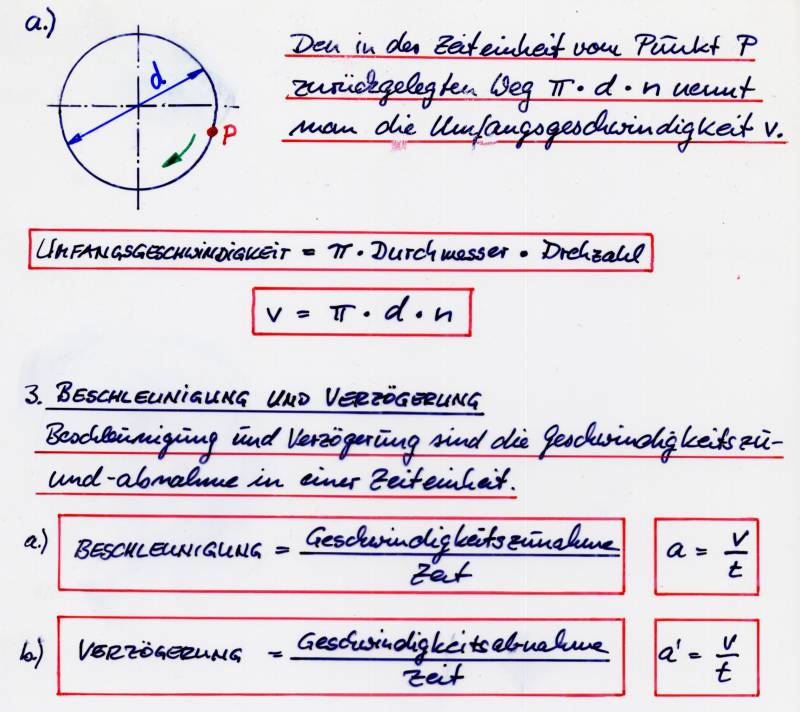 a.)
d
P
Den in der Zeiteinheit vom Punkt P
zurückgelegten Weg π · d · n nennt
man die Umfangsgeschwindigkeit v.
UMFANGSGESCHWINDIGKEIT = π · Durchmesser · Drehzahl
v = π · d · n
3. BESCHLEUNIGUNG UND VERZÖGERUNG
Beschleunigung und Verzögerung sind die Geschwindigkeitszu-
und -abnahme in einer Zeiteinheit.
a.) BESCHLEUNIGUNG = Geschwindigkeitszunahme / Zeit a = v / t
b.) VERZÖGERUNG = Geschwindigkeitsabnahme / Zeit a' = v / t